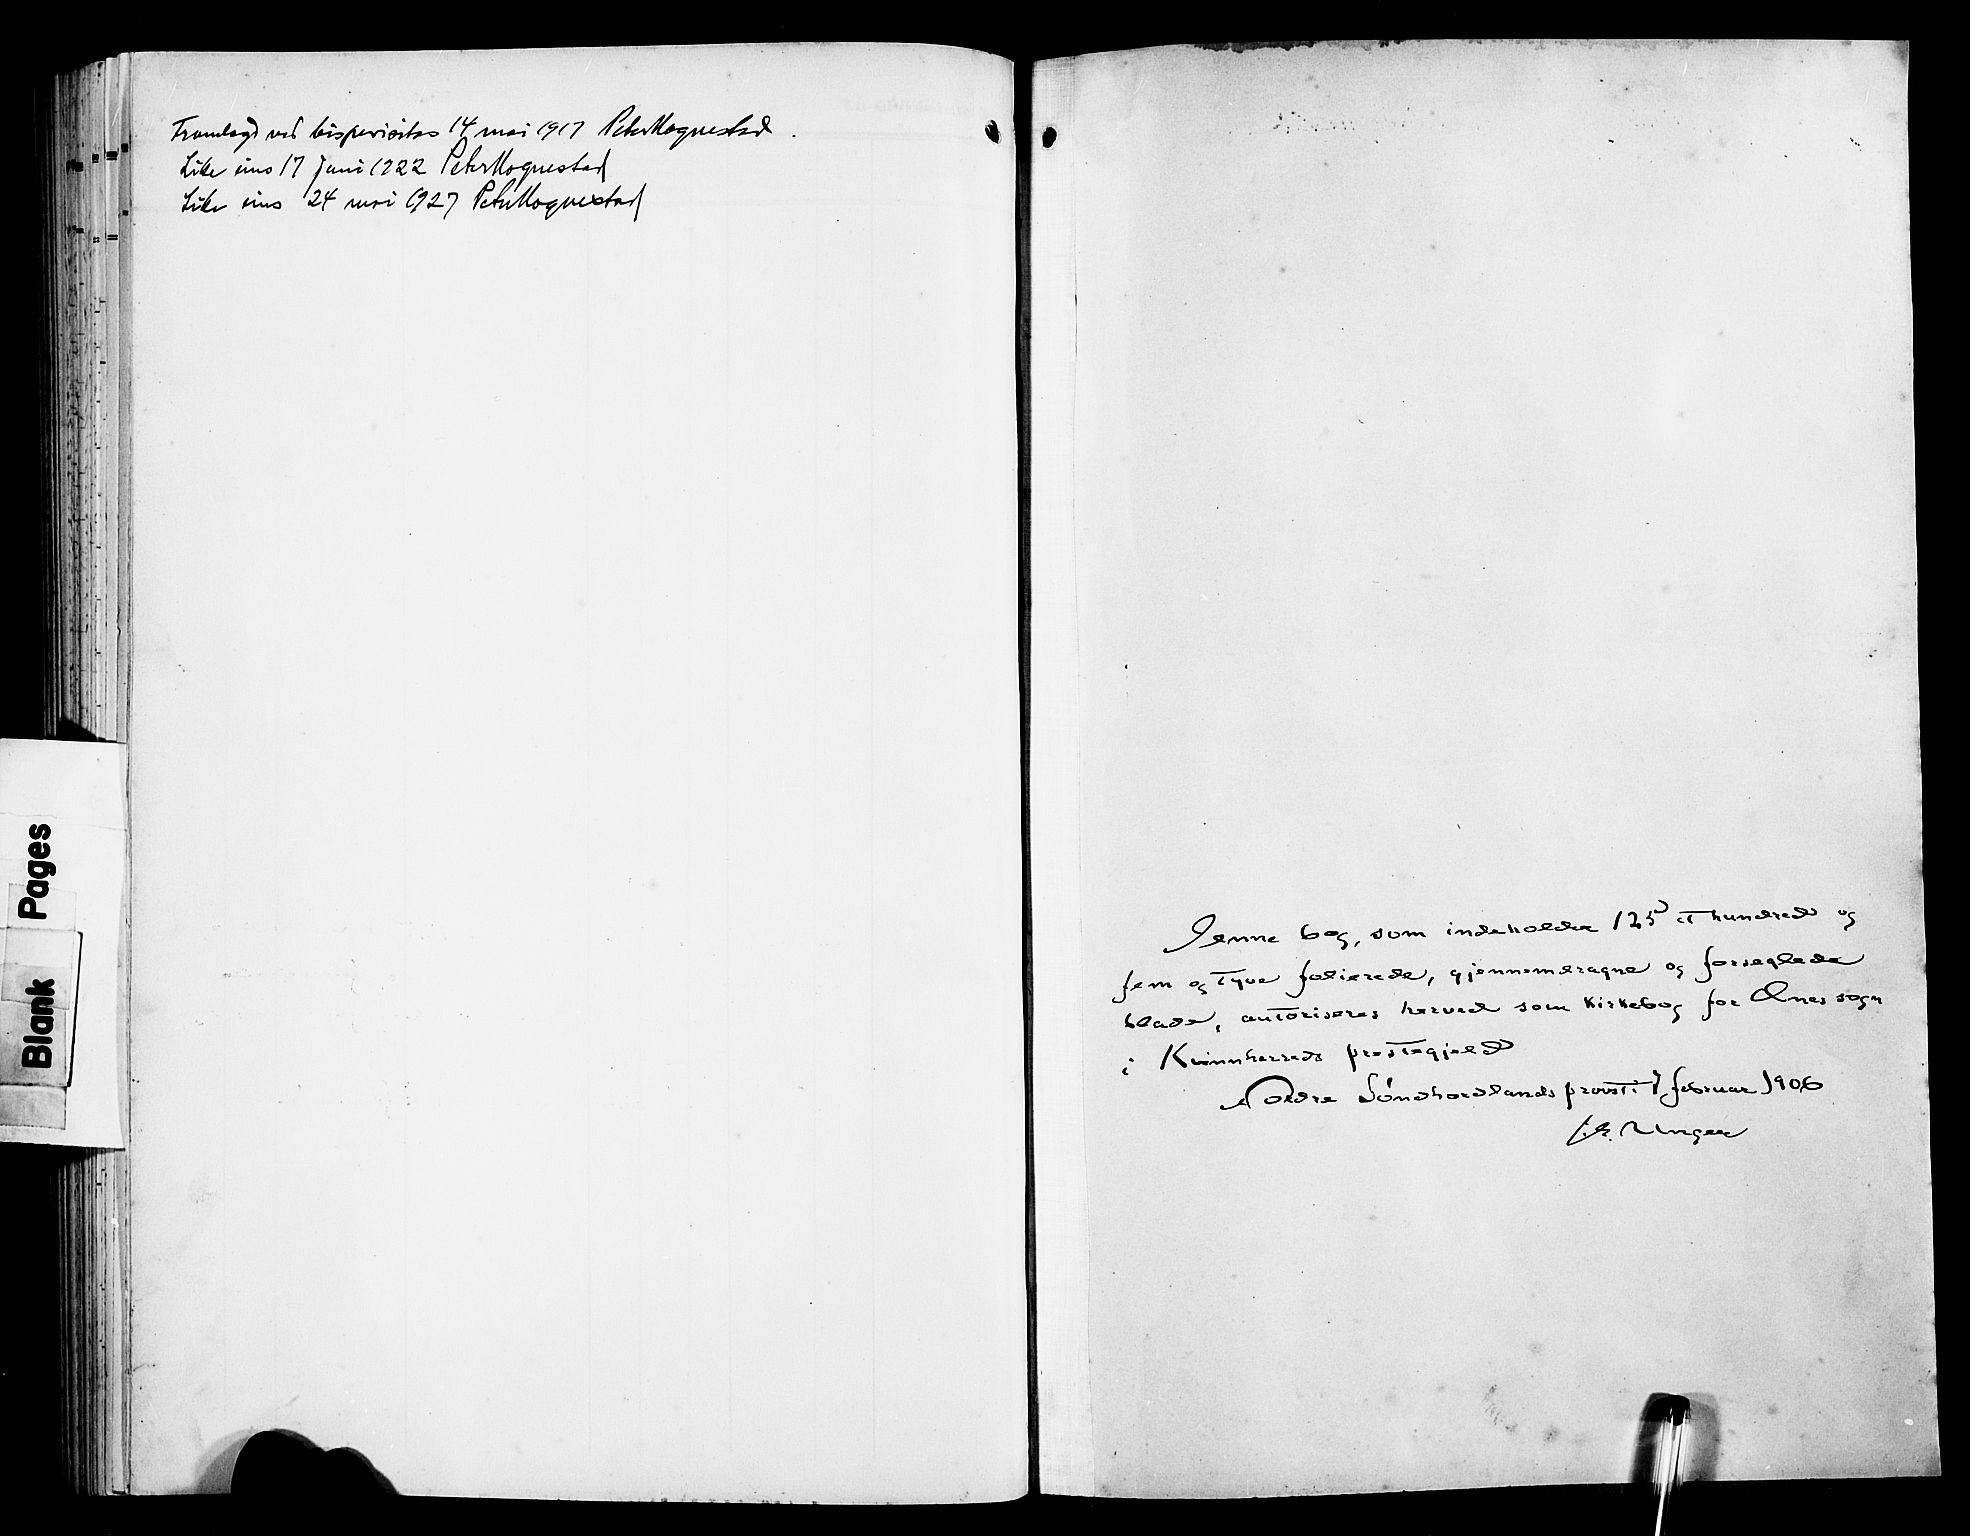 Framlagd ved bispevisitas 14 mai 1917 Peter Hognestad.
Like eins 17 Juni 1922 Peter Hognestad
Like eins 24 mai 1927 Peter Hognestad
Blank Pages
Denne bog, som indeholder 125 et hundrede og
fem og tyve folierede, gjennemdragne og forseglede
blade, autoriseres herved som kirkebog for Ænes sogn
i Kvinnherreds prestegjeld
Nordre Søndhordlands provsti 7 februar 1906
Unger